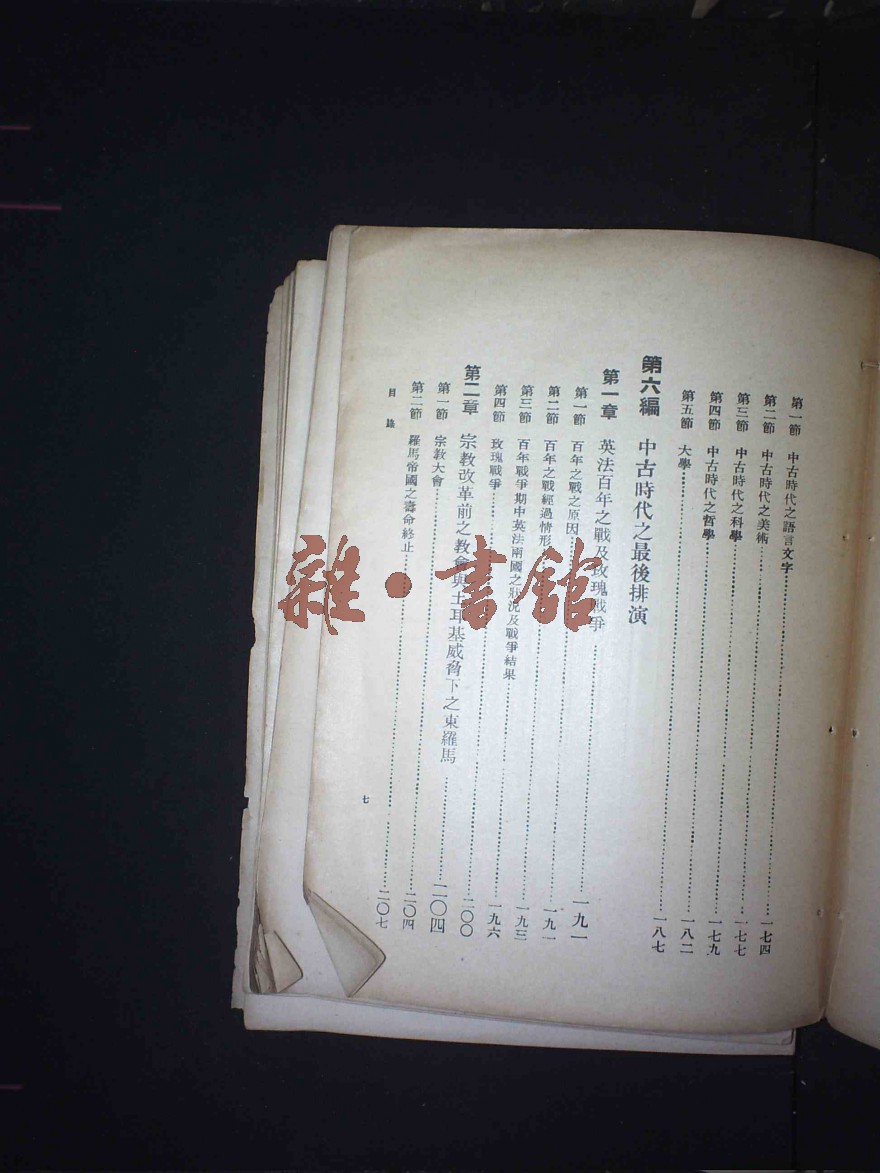 第一節　中古時代之語言文字……一七四
第二節　中古時代之美術……一七七
第三節　中古時代之科學……一七九
第四節　中古時代之哲學……一八二
第五節　大學……一八七
第六編　中古時代之最後排演
第一章　英法百年之戰及玫瑰戰爭……一九一
第一節　百年之戰之原因……一九一
第二節　百年之戰經過情形……一九三
第三節　百年戰爭期中英法兩國之狀況及戰爭結果……一九六
第四節　玫瑰戰爭……二〇〇
第二章　宗教改革前之教會與土耳基威脅下之東羅馬……二〇四
第一節　宗教大會……二〇四
第二節　羅馬帝國之壽命終止……二〇七
目錄
七
雜·書館